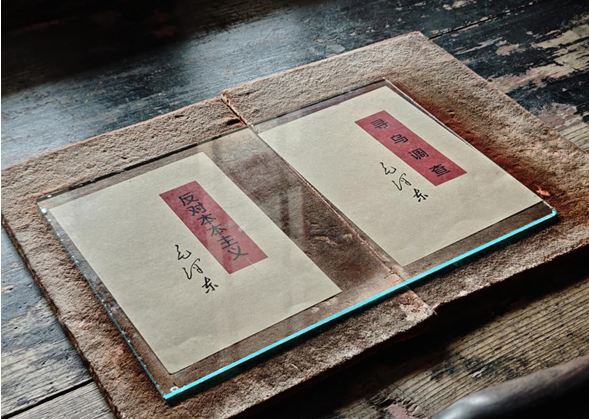 反对本本主义
毛泽东
寻乌调查
毛泽东